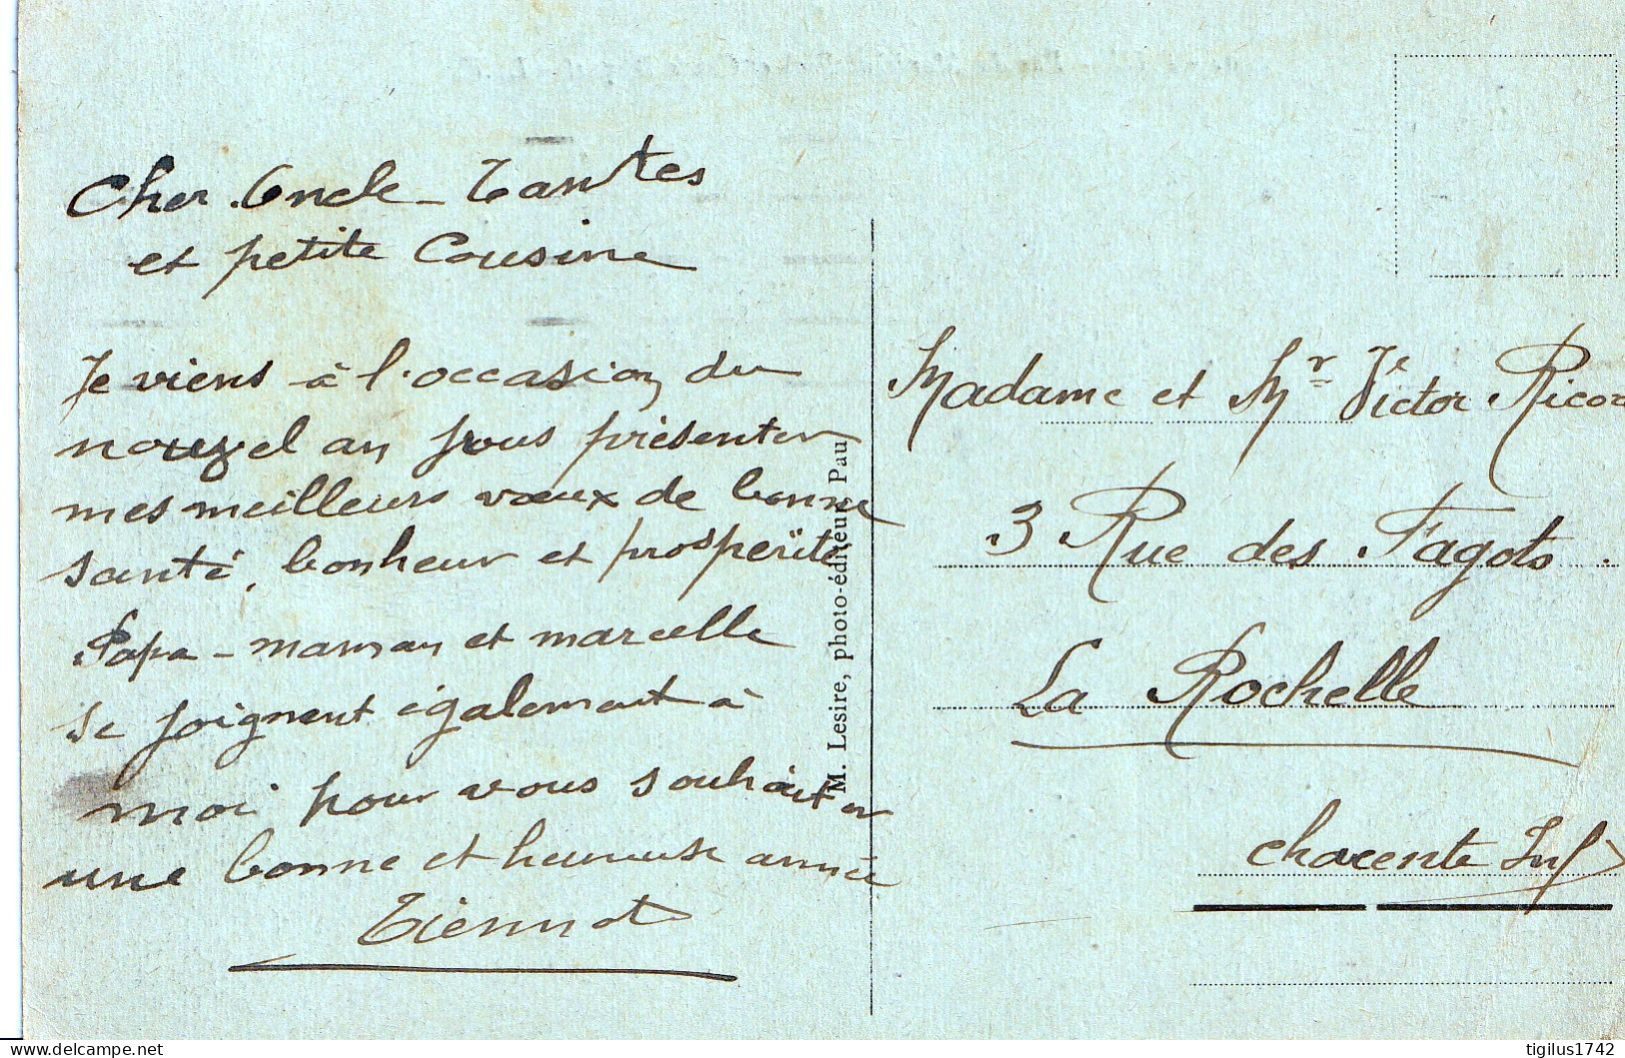 Cher Oncle - Tantes
et petite Cousine
Je viens à l'occasion du
nouvel an vous présenter
mes meilleurs vœux de bonne
santé, bonheur et prospérité
Papa - maman et marcelle
se joignent également à
moi pour vous souhaiter
une bonne et heureuse année
Tiennot
M. Lesire, photo-éditeur, Pau
Madame et Mr Victor
3 Rue des Fagots
La Rochelle
Charente Inf
https://www.delcampe.net
tigilus1742